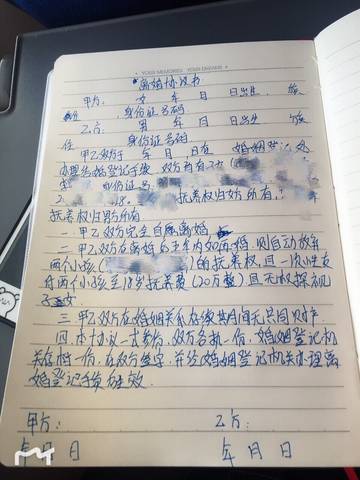 YOUR MEMORIES, YOUR DREAMS
离婚协议书
甲方: 女 年 月 日出生, 族
身份证号码
乙方: 男 年 月 日出生 族
住 身份证号码
甲乙双方于 年 月 日在 婚姻登记处
办理结婚登记手续. 双方育有二女(
身份证号
18. 抚养权归女方所有,
抚养权归男方所有
一. 甲乙双方完全自愿离婚
二. 甲乙双方在离婚的五年内如再婚, 则自动放弃
两个小孩( )的抚养权且一次性支
付两个小孩至18岁抚养费(20万整)且无权探视
子女
三. 甲乙双方在婚姻关系存续其间无共同财产
四. 本协议一式叁份, 双方各执一份, 婚姻登记机
关存档一份, 在双方签字, 并经婚姻登记机关办理离
婚登记手续后生效.
甲方: 乙方:
年 月 日 年 月 日